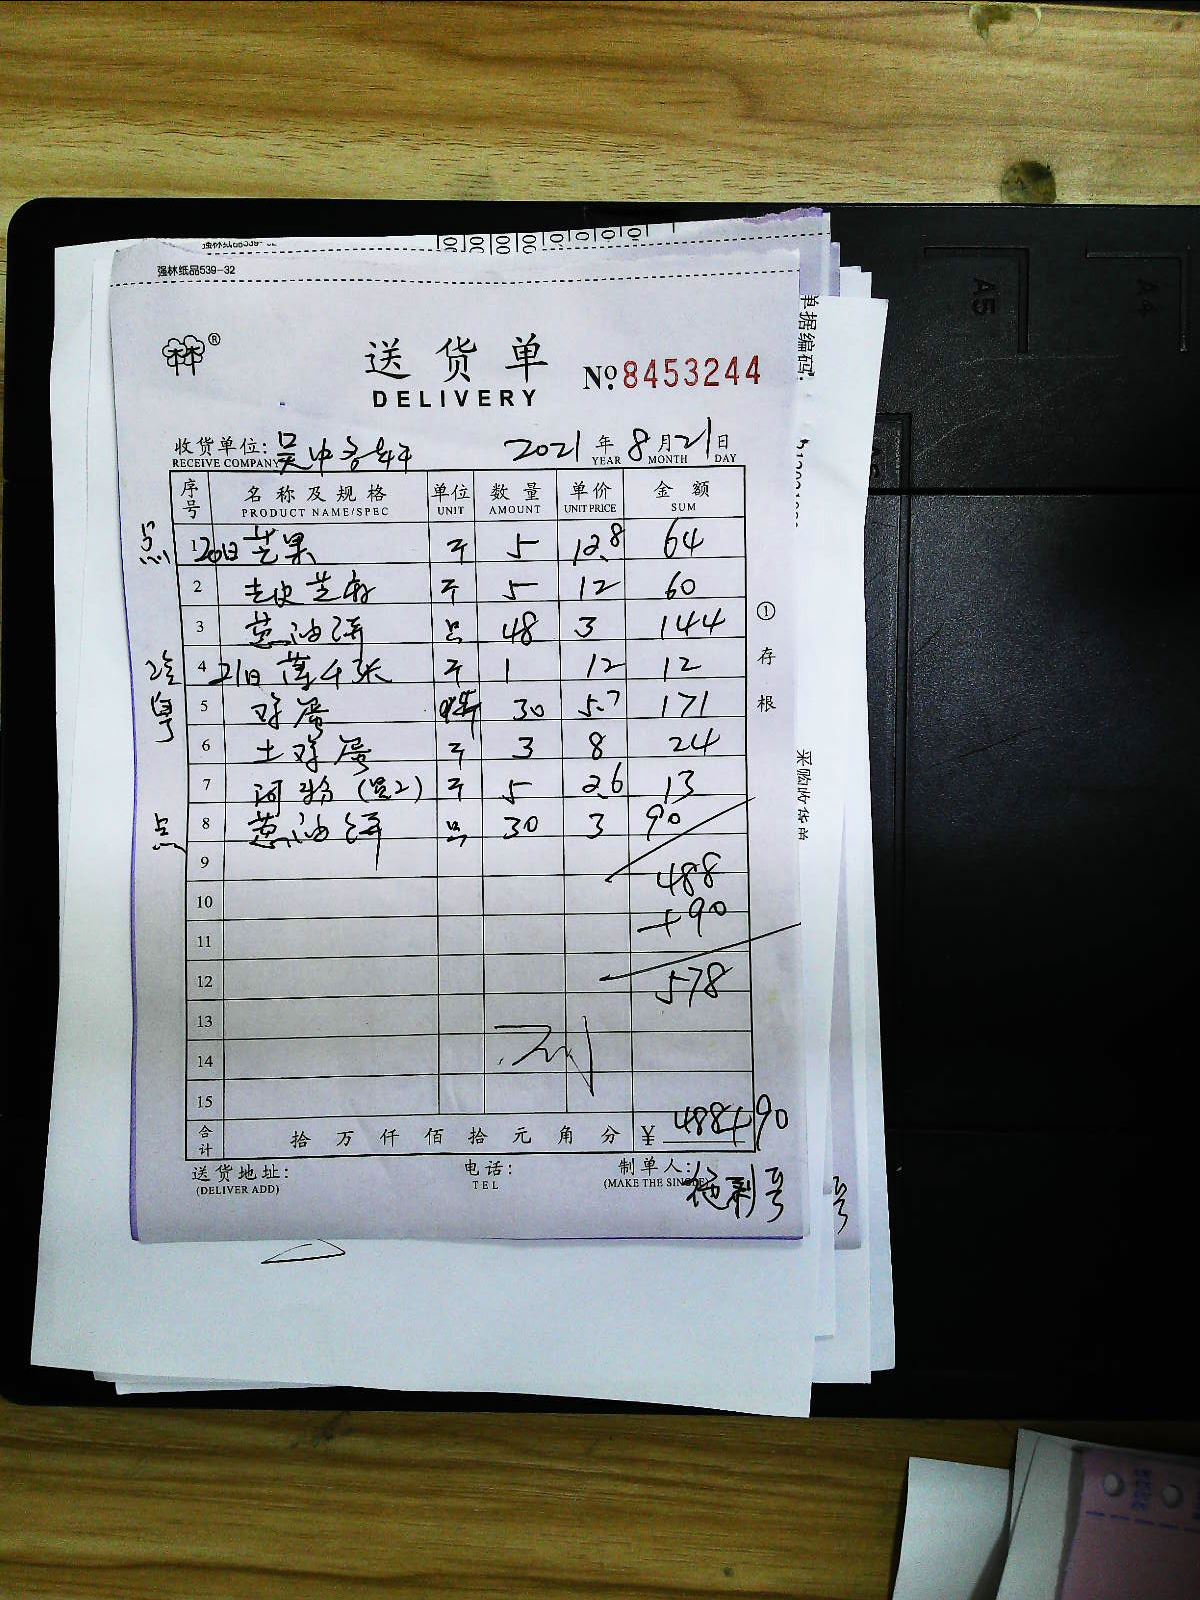 强林纸品539-32
林林®
送货单
DELIVERY
№ 8453244
单据编码:
收货单位: 吴中 2021年8月21日
RECEIVE COMPANY YEAR MONTH DAY
序号 名称及规格 单位 数量 单价 金额
PRODUCT NAME/SPEC UNIT AMOUNT UNIT PRICE SUM
点 1 20日芒果 斤 5 12.8 64
2 去皮芝麻 斤 5 12 60
3 葱油饼 只 48 3 144
4 21日薄千张 斤 1 12 12
5 鸡蛋 30 5.7 171
6 土鸡蛋 斤 3 8 24
7 河粉 斤 5 2.6 13
点 8 葱油饼 只 30 3 90
9 488
10 +90
11
12 578
13
14
15
合计 拾万仟佰拾元角分 ¥ 488+90
①存根
采购收货单
送货地址: 电话: 制单人:
(DELIVER ADD) TEL (MAKE THE SINGLE)
A5
A4